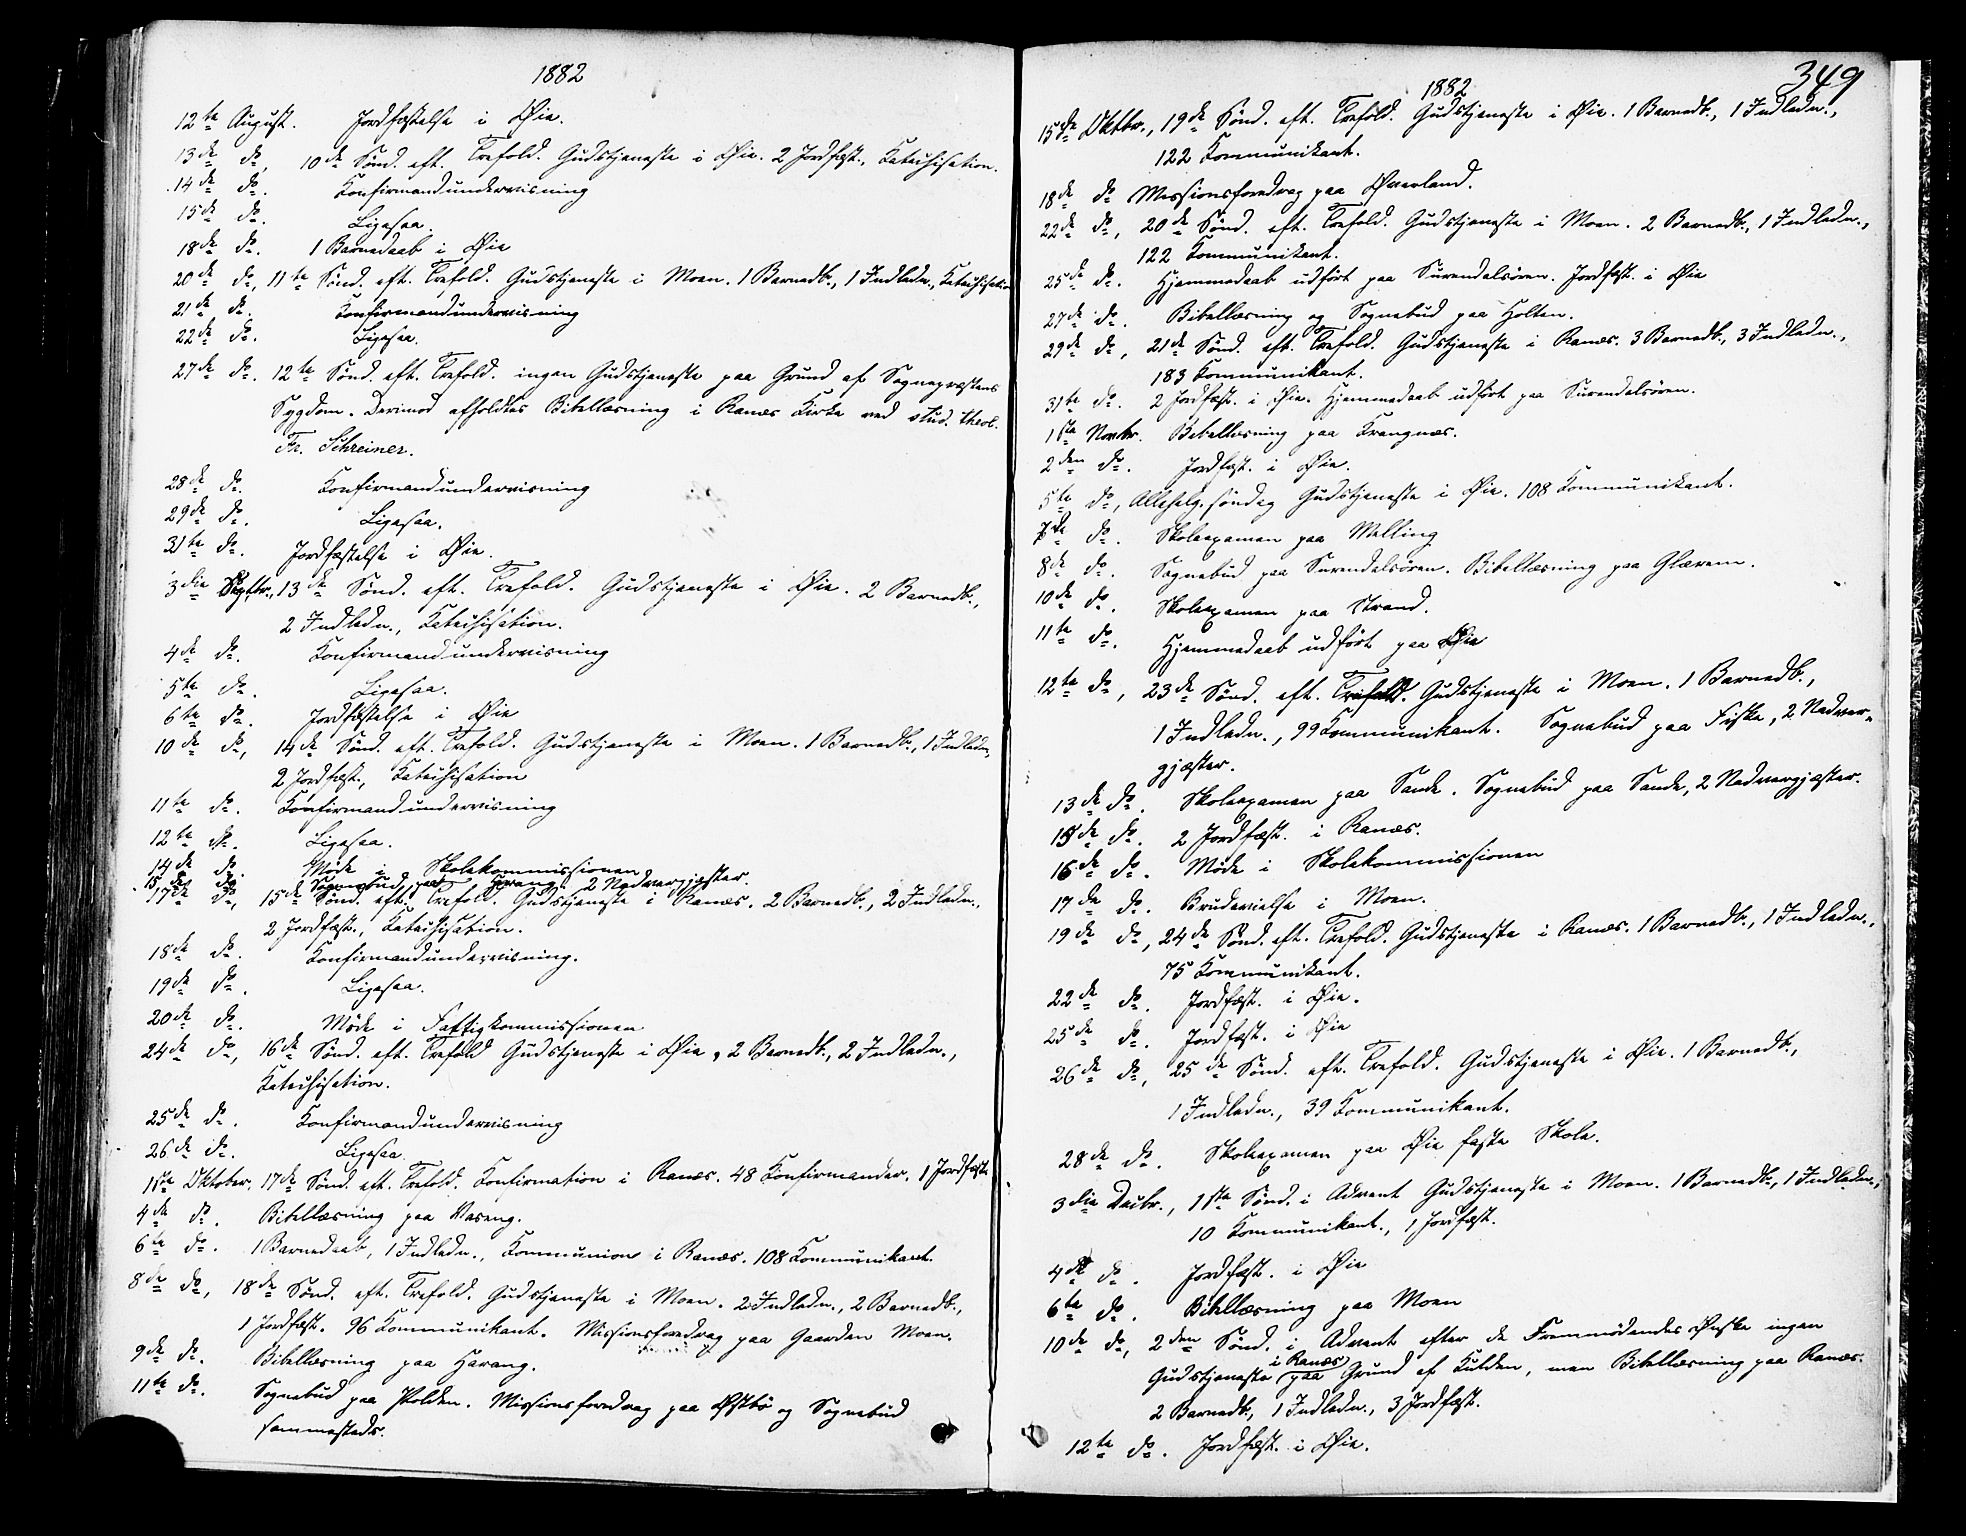 1882
12te August. Jordfæstelse i Øie.
13de do, 10de Sønd. eft. Trefold. Gudstjeneste i Øie. 2 Jordfæst., Katechisation.
14de do. Konfirmandundervisning
15de do. Ligesaa.
18de do. 1 Barnedaab i Øie
20de do, 11te Sønd. eft. Trefold. Gudstjeneste i Moen. 1 Barnedb., 1 Indledn., Katechisation
21de do. Konfirmandundervisning
22de do. Ligesaa.
27de do. 12te Sønd. eft. Trefold. ingen Gudstjeneste paa Grund af Sognepræstens
Sygdom. Derimod afholdtes Bibellæsning i Ranæs Kirke ved stud. theol.
Fr. Schreiner.
28de do. Konfirmandundervisning
29de do. Ligesaa.
31te do. Jordfæstelse i Øie.
3die Septbr., 13de Sønd. eft. Trefold. Gudstjeneste i Øie. 2 Barnedb.,
2 Indledn., Katechisation.
4de do. Konfirmandundervisning
5te do. Ligesaa.
6te do. Jordfæstelse i Øie
10de do, 14de Sønd. eft. Trefold. Gudstjeneste i Moen. 1 Barnedb., 1 Indledn.,
2 Jordfæst., Katechisation
11te do. Konfirmandundervisning
12te do. Ligesaa.
14de do. Møde i Skolekommissionen
15de do. Sognebud paa 2 Nadvergjæster.
17de do, 15de Sønd. eft. Trefold. Gudstjeneste i Ranæs. 2 Barnedb., 2 Indledn.,
2 Jordfæst., Katechisation.
18de do. Konfirmandundervisning.
19de do. Ligesaa.
20de do. Møde i Fattigkommissionen
24de do, 16de Sønd. eft. Trefold Gudstjeneste i Øie, 2 Barnedb., 2 Indledn.,
Katechisation.
25de do. Konfirmandundervisning
26de do. Ligesaa.
1ste Oktober, 17de Sønd. eft. Trefold. Konfirmation i Ranæs. 48 Konfirmander. 1 Jordfæst.
4de do. Bibellæsning paa Vaseng.
6te do. 1 Barnedaab, 1 Indledn., Kommunion i Ranæs. 108 Kommunikant.
8de do, 18de Sønd. eft. Trefold. Gudstjeneste i Moen. 2 Indledn., 2 Barnedb.,
1 Jordfæst. 96 Kommunikant. Missionsforedrag paa Gaarden Moen.
9de do. Bibellæsning paa Harang.
11te do. Sognebud paa Holden. Missionsforedrag paa Østbø og Sognebud
sammesteds.
349
1882
15de Oktbr., 19de Sønd. eft. Trefold. Gudstjeneste i Øie. 1 Barnedb., 1 Indledn.,
122 Kommunikant.
18de do Missionsforedrag paa Øverland.
22de do, 20de Sønd. eft. Trefold. Gudstjeneste i Moen. 2 Barnedb., 1 Indledn.,
122 Kommunikant.
25de do. Hjemmedaab udført paa Surendalsøren. Jordfæst. i Øie
27de do. Bibellæsning og Sognebud paa Holten.
29de do, 21de Sønd. eft. Trefold. Gudstjeneste i Ranæs. 3 Barnedb., 3 Indledn.,
183 Kommunikant.
31te do. 2 Jordfæst. i Øie. Hjemmedaab udført paa Surendalsøren.
1ste Novbr. Bibellæsning paa Krangnæs.
2den do. Jordfæst. i Øie.
5te do, Allehelg.søndag Gudstjeneste i Øie. 108 Kommunikant.
7de do. Skoleexamen paa Melling
8de do. Sognebud paa Surendalsøren. Bibellæsning paa Glærem.
10de do. Skoleexamen paa Strand.
11te do. Hjemmedaab udført paa Øie
12te do, 23de Sønd. eft. Trefold. Gudstjeneste i Moen. 1 Barnedb.,
1 Indledn., 99 Kommunikant. Sognebud paa Fiske, 2 Nadver-
gjæster.
13de do. Skoleexamen paa Sande. Sognebud paa Sande, 2 Nadvergjæster.
15de do. 2 Jordfæst. i Ranæs.
16de do. Møde i Skolekommissionen
17de do. Brudevielse i Moen.
19de do, 24de Sønd. eft. Trefold. Gudstjeneste i Ranæs. 1 Barnedb., 1 Indledn.,
75 Kommunikant.
22de do. Jordfæst. i Øie.
25de do. Jordfæst. i Øie
26de do, 25de Sønd. eft. Trefold. Gudstjeneste i Øie. 1 Barnedb.,
1 Indledn., 39 Kommunikant.
28de do. Skoleexamen paa Øie faste Skole.
3die Decbr., 1ste Sønd. i Advent Gudstjeneste i Moen. 1 Barnedb., 1 Indledn.,
10 Kommunikant., 1 Jordfæst.
4de do. Jordfæst. i Øie
6te do. Bibellæsning paa Moen
10de do, 2den Sønd. i Advent efter de Fremmødendes Ønske ingen
Gudstjeneste i Ranæs paa Grund af Kulden, men Bibellæsning paa Ranæs.
2 Barnedb., 1 Indledn., 3 Jordfæst.
12te do. Jordfæst. i Øie.